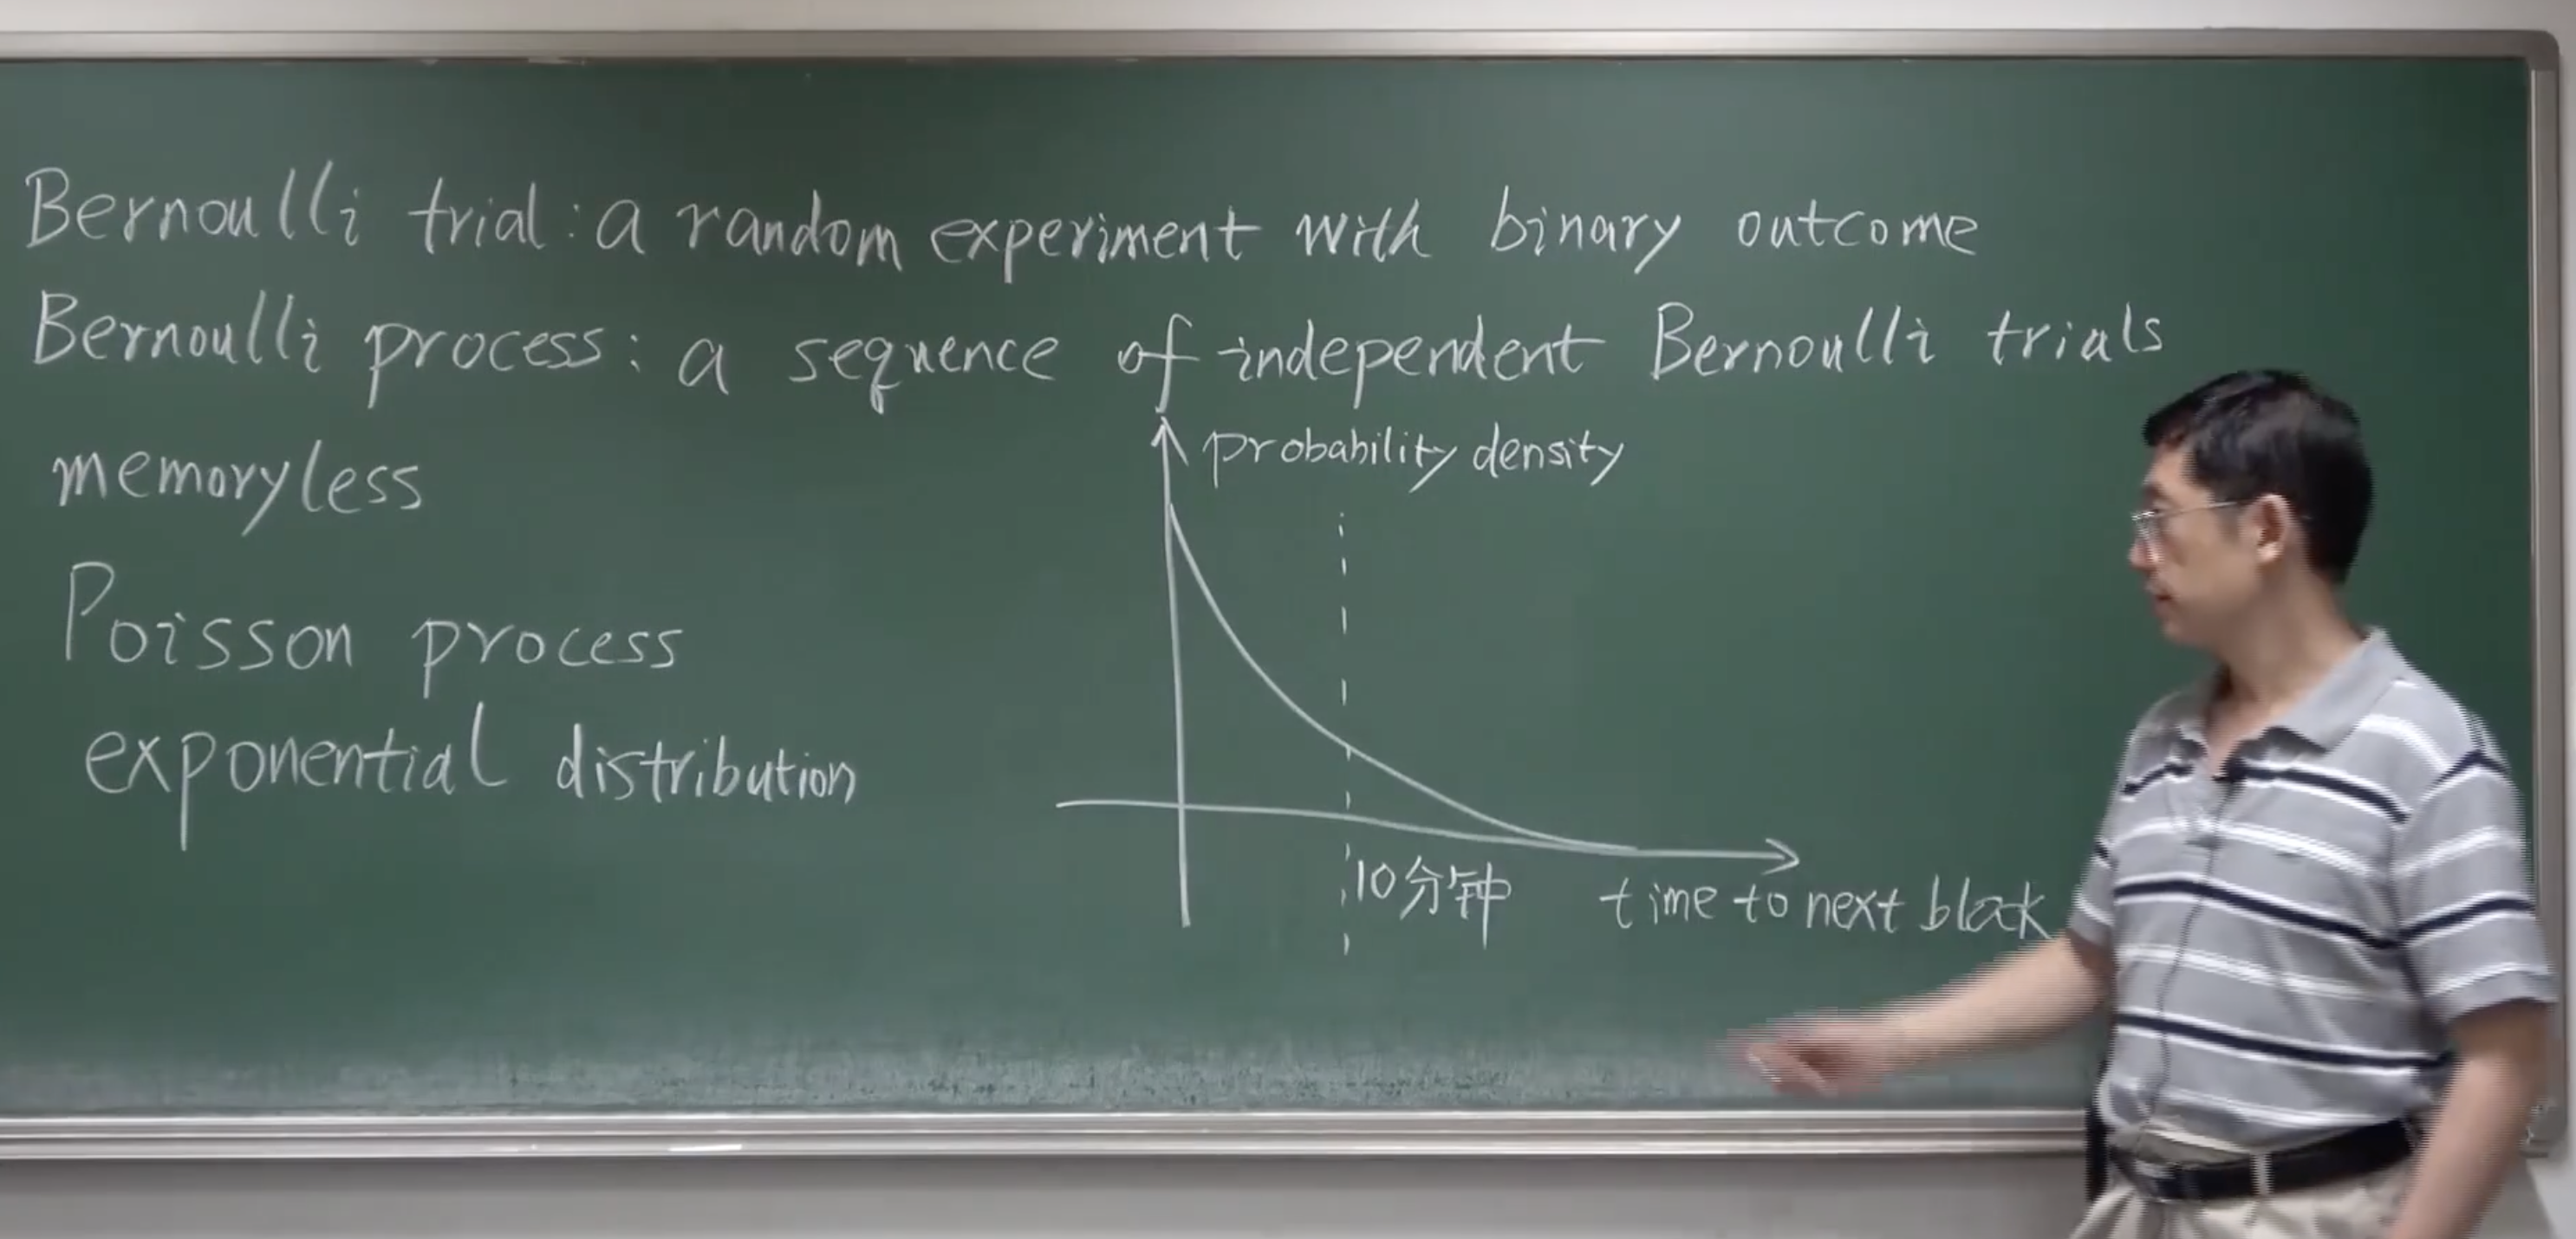 Bernoulli trial: a random experiment with binary outcome
Bernoulli process: a sequence of independent Bernoulli trials
memoryless
Poisson process
exponential distribution
probability density
10分钟
time to next block